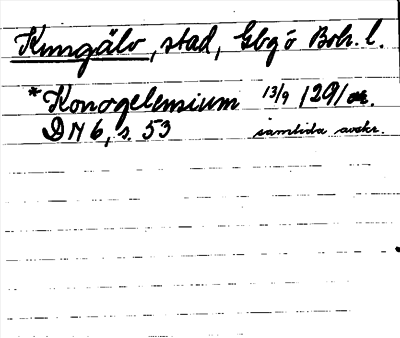 Kungälv, stad, Gbg o Boh. l.
* Konogelensium 13/9 1291 or.
DN 6, s. 53 samtida avskr.